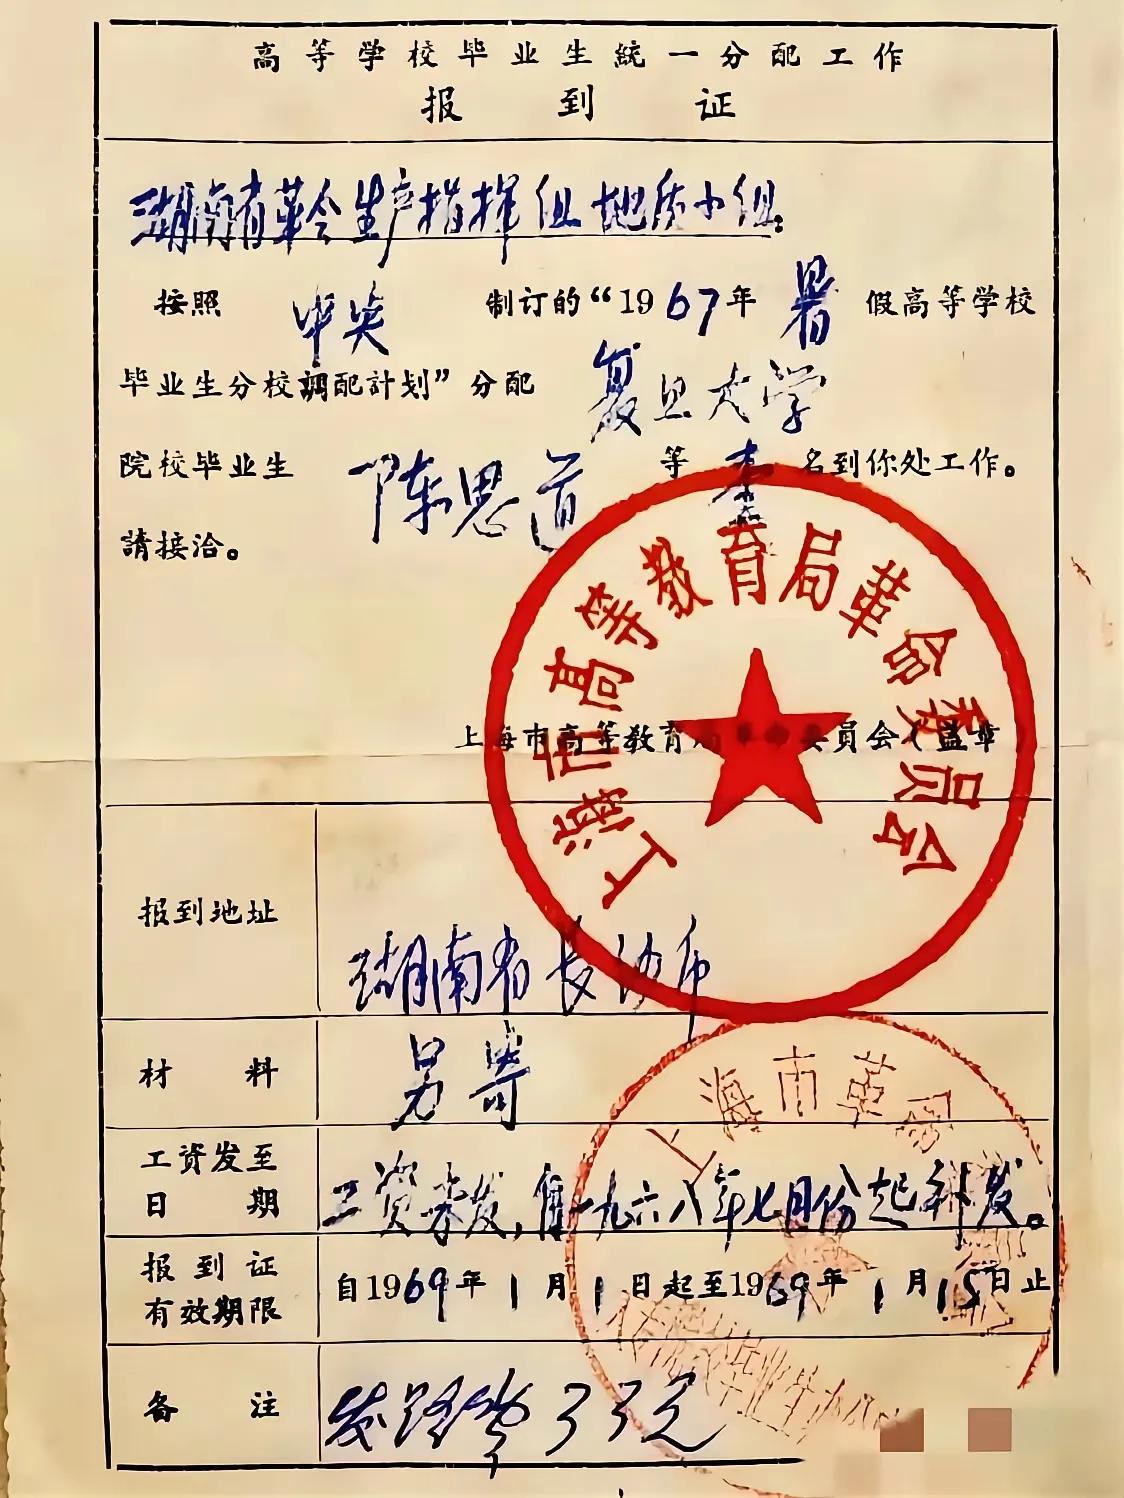 高等学校毕业生統一分配工作
报到证
湖南省革会生产指挥组地质小组
按照 中央 制订的“1967年 暑 假高等学校
毕业生分校調配計划”分配 复旦大学
院校毕业生 陈思道 等 壹 名到你处工作。
請接洽。
上海市高等教育局革命委員会（盖章
上海市高等教育局革命委员会
报到地址 湖南省长沙市
材料 另寄
工资发至日期 工资未发，自一九六八年七月份起补发。
报到证有效期限 自1969年1月1日起至1969年1月15日止
备注 发路费33元
上海市革
毕业生办公